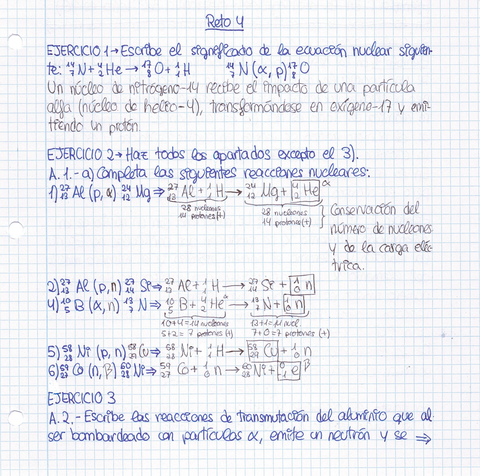 Reto 4
EJERCICIO 1 → Escribe el significado de la ecuación nuclear siguien-
te: ¹⁴₇N + ⁴₂He → ¹⁷₈O + ¹₁H ¹⁴₇N (α, p) ¹⁷₈O
Un núcleo de nitrógeno-14 recibe el impacto de una partícula
alfa (núcleo de helio-4), transformándose en oxígeno-17 y emi-
tiendo un protón.
EJERCICIO 2 → Haz todos los apartados excepto el 3).
A.1.- a) Completa las siguientes reacciones nucleares:
1) ²⁷₁₃Al (p, α) ²⁴₁₂Mg ⇒ ²⁷₁₃Al + ¹₁H → ²⁴₁₂Mg + ⁴₂He α
28 nucleones 14 protones (+) 28 nucleones 14 protones (+)
Conservación del
número de nucleones
y de la carga eléc-
trica.
2) ²⁷₁₃Al (p, n) ²⁷₁₄Si ⇒ ²⁷₁₃Al + ¹₁H → ²⁷₁₄Si + ¹₀n
4) ¹⁰₅B (α, n) ¹³₇N ⇒ ¹⁰₅B + ⁴₂He → ¹³₇N + ¹₀n
10+4=14 nucleones 13+1=14 nucl.
5+2=7 protones (+) 7+0=7 protones (+)
5) ⁵⁸₂₈Ni (p, n) ⁵⁸₂₉Cu ⇒ ⁵⁸₂₈Ni + ¹₁H → ⁵⁸₂₉Cu + ¹₀n
6) ⁵⁹₂₇Co (n, β) ⁶⁰₂₈Ni ⇒ ⁵⁹₂₇Co + ¹₀n → ⁶⁰₂₈Ni + ⁰₋₁e β
EJERCICIO 3
A.2.- Escribe las reacciones de transmutación del aluminio que al
ser bombardeado con partículas α, emite un neutrón y se ⇒